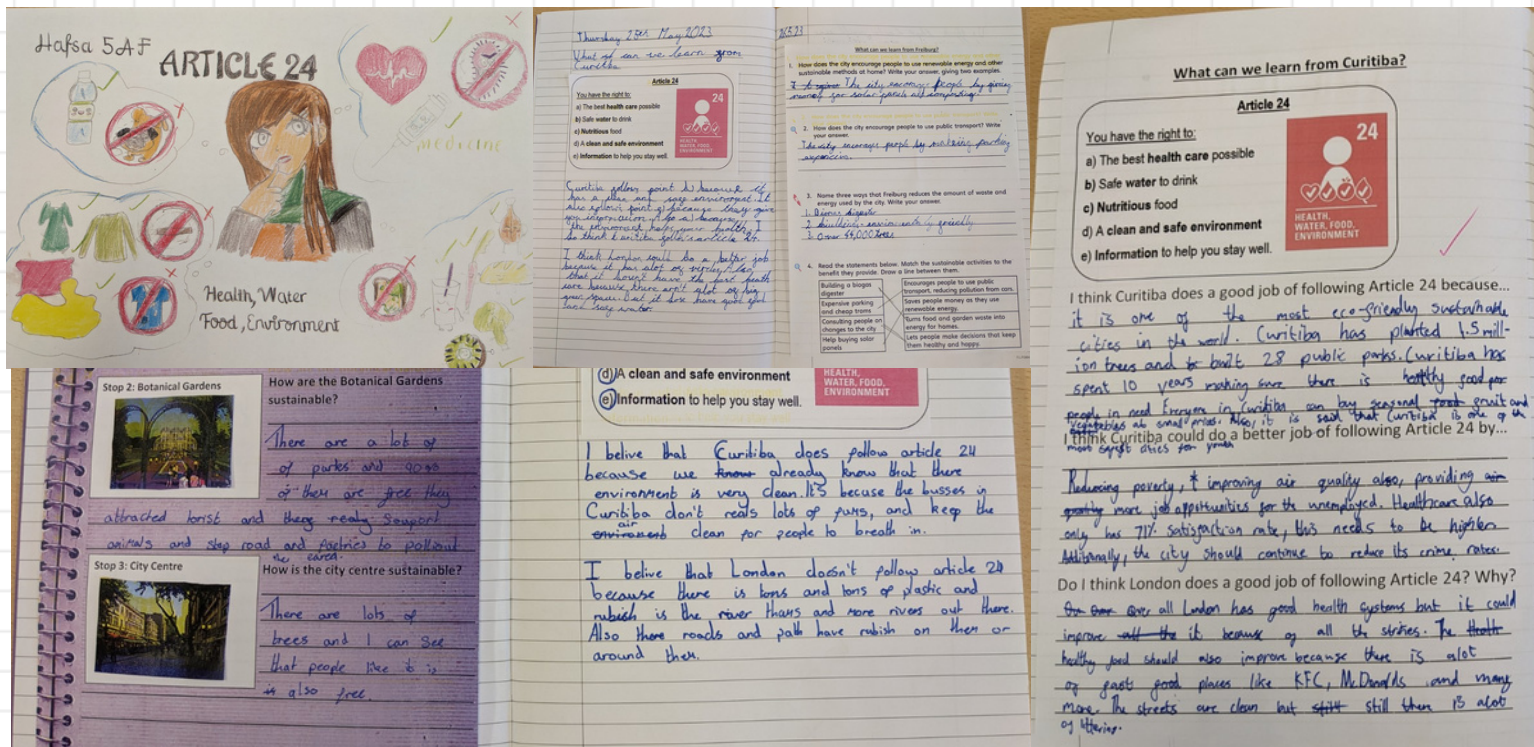 Hafsa 5AF
ARTICLE 24
medicine
Health, Water
Food, Environment
Thursday 25th May 2023
What can we learn from
Curitiba
Article 24
You have the right to:
a) The best health care possible
b) Safe water to drink
c) Nutritious food
d) A clean and safe environment
e) Information to help you stay well.
24
HEALTH,
WATER, FOOD,
ENVIRONMENT
Curitiba follow point d because it
has a clean and safe environment. It
also follows point e because they give
you information
the environment helps your health. I
So think Curitiba follows article 24.
I think London could do a better job
because it has alot of
that it doesn't have the best health
care because there aren't alot of big
green space. But it dose have good food
and safe water.
What can we learn from Freiburg?
1. How does the city encourage people to use renewable energy and other
sustainable methods at home? Write your answer, giving two examples.
The city encourage people by giving
money for solar panels and composting.
2. How does the city encourage people to use public transport? Write
your answer.
The city encourage people by making parking
expensive.
3. Name three ways that Freiburg reduces the amount of waste and
energy used by the city. Write your answer.
1.
2.
3. Over
4. Read the statements below. Match the sustainable activities to the
benefit they provide. Draw a line between them.
Building a biogas
digester
Expensive parking
and cheap trams
Consulting people on
changes to the city
Help buying solar
panels
Encourages people to use public
transport, reducing pollution from cars.
Saves people money as they use
renewable energy.
Turns food and garden waste into
energy for homes.
Lets people make decisions that keep
them healthy and happy.
What can we learn from Curitiba?
Article 24
You have the right to:
a) The best health care possible
b) Safe water to drink
c) Nutritious food
d) A clean and safe environment
e) Information to help you stay well.
24
HEALTH,
WATER, FOOD,
ENVIRONMENT
I think Curitiba does a good job of following Article 24 because...
it is one of the most eco-friendly sustainable
cities in the world. Curitiba has planted 1.5 mill-
ion trees and built 28 public parks. Curitiba has
spent 10 years making sure there is healthy food for
people in need Everyone in Curitiba can buy seasonal fruit and
vegetables at small prices. Also, it is said that Curitiba is one of the
most safest cities for youth
I think Curitiba could do a better job of following Article 24 by...
Reducing poverty, * improving air quality also, providing
more job oppotunities for the unemployed. Healthcare also
only has 71% satisfaction rate, this needs to be higher.
Additionally, the city should continue to reduce its crime rates.
Do I think London does a good job of following Article 24? Why?
Over all London has good health systems but it could
improve it because of all the strikes. The
healthy food should also improve because there is alot
of fast food places like KFC, McDonalds and many
more. The streets are clean but still there is alot
of littering.
Stop 2: Botanical Gardens
How are the Botanical Gardens
sustainable?
There are a lot of
of parks and
of them are free they
attracted torist and they realy souport
animals and stop road and factries to pollout
the earea.
Stop 3: City Centre
How is the city centre sustainable?
There are lots of
trees and I can see
that people like it is
is also free.
d) A clean and safe environment
e) Information to help you stay well.
HEALTH,
WATER, FOOD,
ENVIRONMENT
I belive that Curitiba does follow article 24
because we know already know that there
environment is very clean. It's becuse the busses in
Curitiba don't reals lots of fums, and keep the
air
environment clean for people to breath in.
I belive that London doesn't follow article 24
because there is tons and tons of plastic and
rubish is the river thams and more rivers out there.
Also there roads and path have rubish on them or
around them.